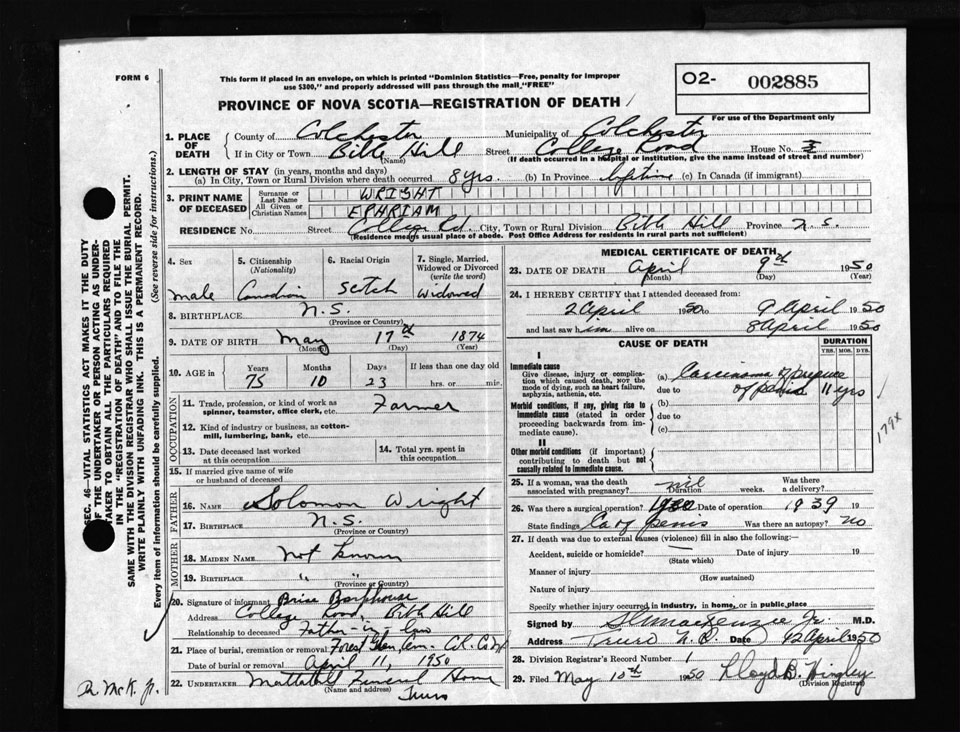 FORM 6
This form if placed in an envelope, on which is printed "Dominion Statistics—Free, penalty for improper
use $300," and properly addressed will pass through the mail "FREE"
O2- 002885
For use of the Department only
PROVINCE OF NOVA SCOTIA—REGISTRATION OF DEATH
1. PLACE OF DEATH County of Colchester Municipality of Colchester
If in City or Town Bible Hill (Name) Street College Road House No.
(If death occurred in a hospital or institution, give the name instead of street and number)
2. LENGTH OF STAY (in years, months and days)
(a) In City, Town or Rural Division where death occurred 8 yrs. (b) In Province lifetime (c) In Canada (if immigrant)
3. PRINT NAME OF DECEASED Surname or Last Name WRIGHT
All Given or Christian Names EPHRIAM
RESIDENCE No. Street College Rd. City, Town or Rural Division Bible Hill Province N.S.
(Residence means usual place of abode. Post Office Address for residents in rural parts not sufficient)
4. Sex male
5. Citizenship (Nationality) Canadian
6. Racial Origin Scotch
7. Single, Married, Widowed or Divorced (write the word) Widowed
8. BIRTHPLACE N.S. (Province or Country)
9. DATE OF BIRTH May (Month) 17th (Day) 1874 (Year)
10. AGE in Years 75 Months 10 Days 23 If less than one day old hrs. or min.
OCCUPATION
11. Trade, profession, or kind of work as spinner, teamster, office clerk, etc. Farmer
12. Kind of industry or business, as cotton-mill, lumbering, bank, etc.
13. Date deceased last worked at this occupation
14. Total yrs. spent in this occupation
15. If married give name of wife or husband of deceased
FATHER
16. NAME Solomon Wright
17. BIRTHPLACE N.S. (Province or Country)
MOTHER
18. MAIDEN NAME not known
19. BIRTHPLACE " " (Province or Country)
20. Signature of informant
Address College Road, Bible Hill
Relationship to deceased Father-in-law
21. Place of burial, cremation or removal Forest Glen Cem. Col. Co
Date of burial or removal April 11, 1950
22. UNDERTAKER Mattatall Funeral Home
(Name and address) Truro
MEDICAL CERTIFICATE OF DEATH
23. DATE OF DEATH April (Month) 9th (Day) 1950 (Year)
24. I HEREBY CERTIFY that I attended deceased from:
2 April 1950 to 9 April 1950
and last saw him alive on 8 April 1950
CAUSE OF DEATH
DURATION
YRS. MOS. DYS.
I
Immediate cause
Give disease, injury or complication which caused death, not the mode of dying, such as heart failure, asphyxia, asthenia, etc.
(a) Carcinoma of prepuce
due to of penis 11 yrs
Morbid conditions, if any, giving rise to immediate cause (stated in order proceeding backwards from immediate cause).
(b)
due to
(c)
II
Other morbid conditions (if important) contributing to death but not causally related to immediate cause.
179x
25. If a woman, was the death associated with pregnancy? nil Duration weeks. Was there a delivery?
26. Was there a surgical operation? Date of operation 1939 19
State findings Ca of penis Was there an autopsy? no
27. If death was due to external causes (violence) fill in also the following:—
Accident, suicide or homicide? (State which) Date of injury 19
Manner of injury (How sustained)
Nature of injury
Specify whether injury occurred in industry, in home, or in public place
Signed by MacKenzie Jr. M.D.
Address Truro N.S. Date 12 April 1950
28. Division Registrar's Record Number 1
29. Filed May 10th 1950 Lloyd B. Wingley
(Division Registrar)
SEC. 46—VITAL STATISTICS ACT MAKES IT THE DUTY
OF THE UNDERTAKER OR PERSON ACTING AS UNDER-
TAKER TO OBTAIN ALL THE PARTICULARS REQUIRED
IN THE "REGISTRATION OF DEATH" AND TO FILE THE
SAME WITH THE DIVISION REGISTRAR WHO SHALL ISSUE THE BURIAL PERMIT.
WRITE PLAINLY WITH UNFADING INK. THIS IS A PERMANENT RECORD.
Every item of information should be carefully supplied. (See reverse side for instructions.)
McK. Jr.